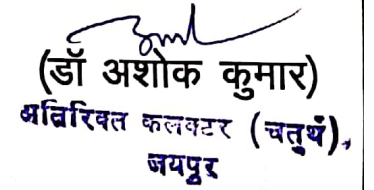 (डॉ अशोक कुमार)
अतिरिक्त कलक्टर (चतुर्थ),
जयपुर